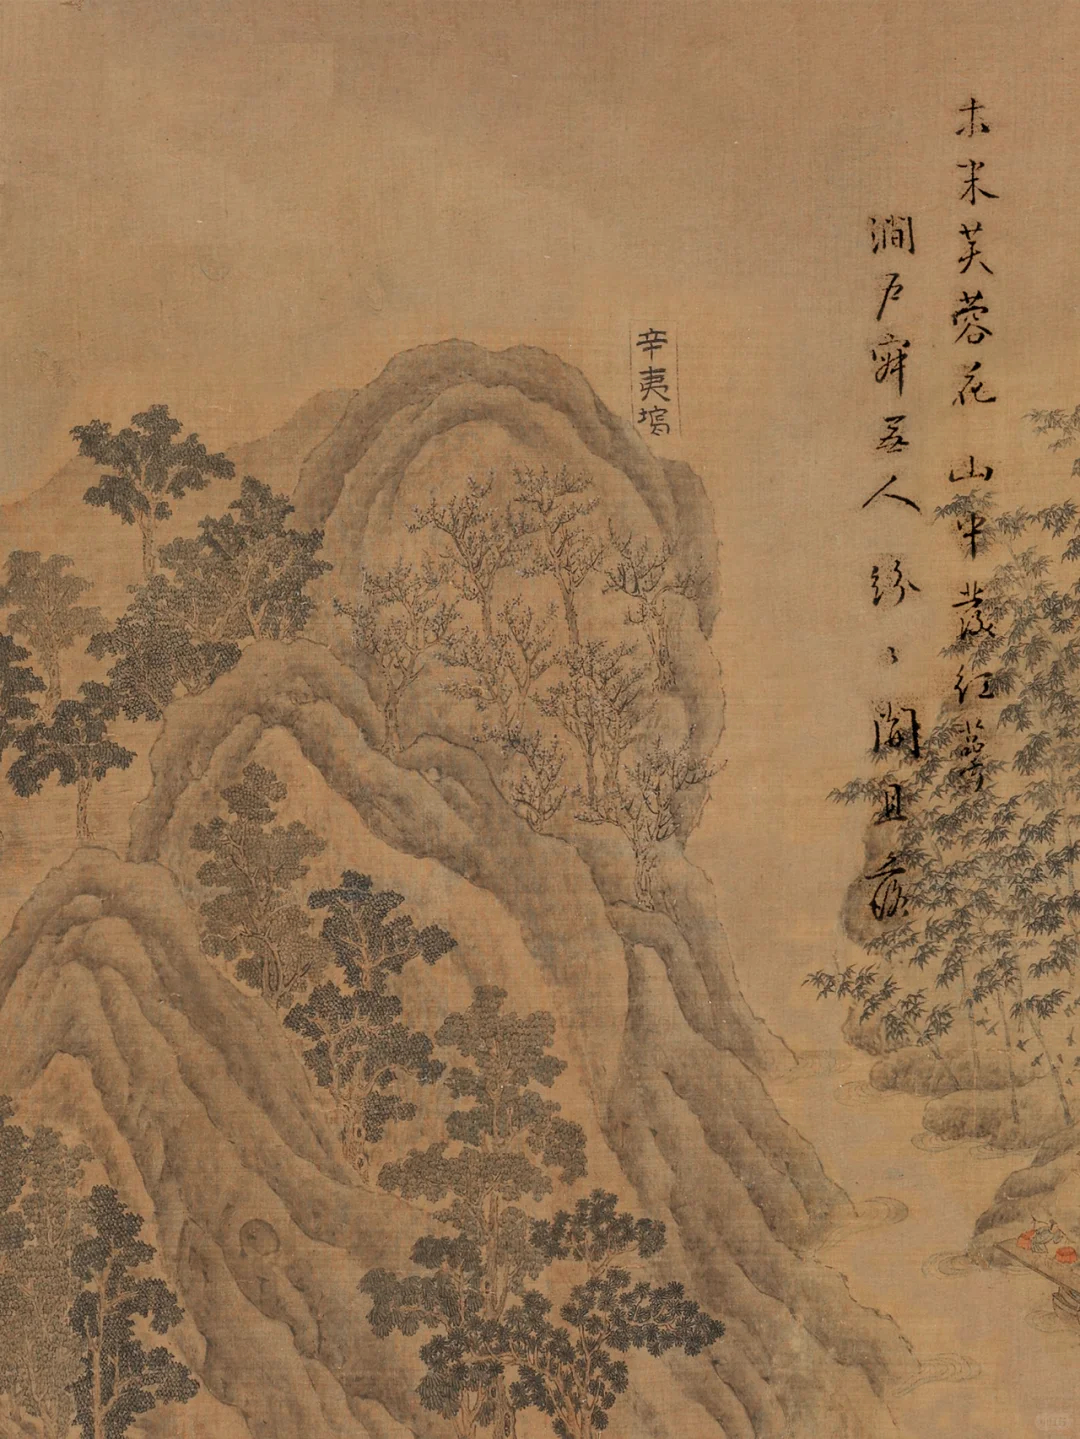 木末芙蓉花 山中發紅萼
澗戶寂無人 紛〻開且落
辛夷塢